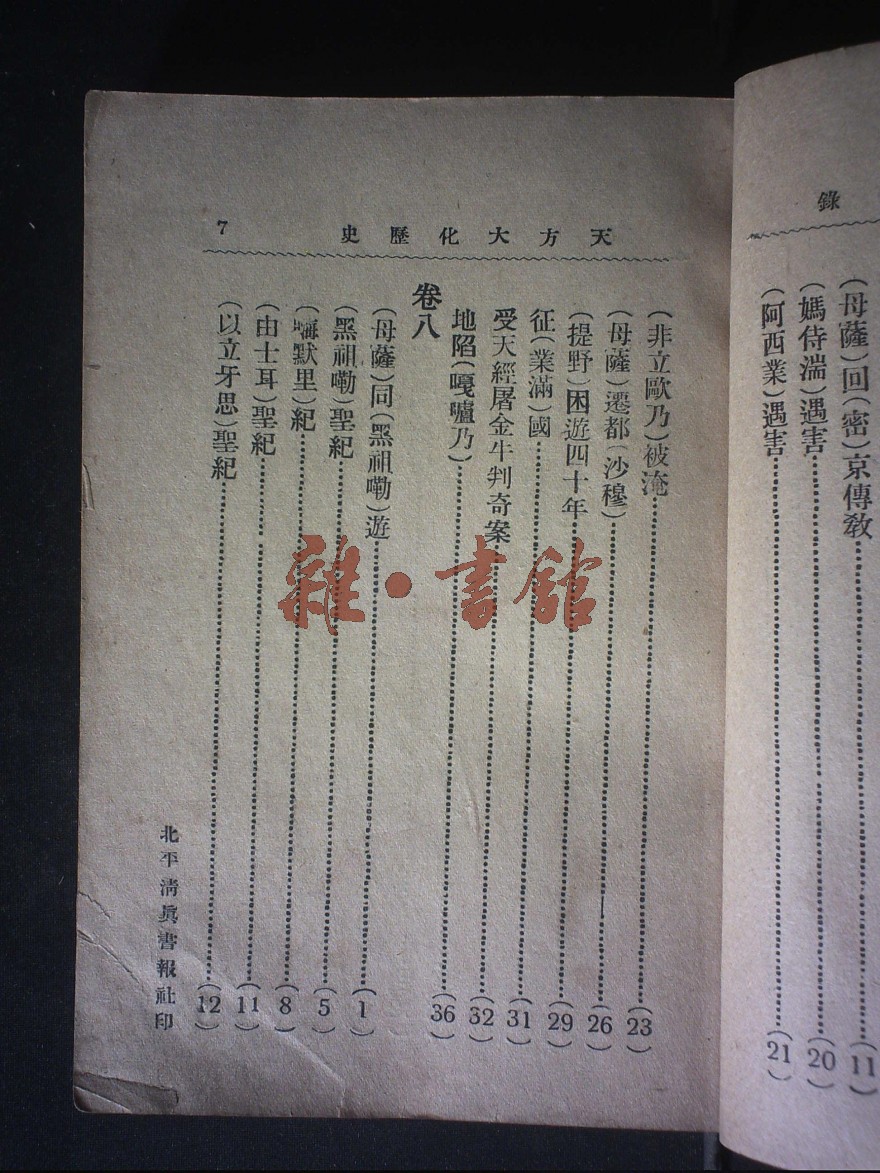 錄
(母薩)回(密)京傳敎(11)
(媽侍湍)遇害(20)
(阿西業)遇害(21)
天方大化歷史
7
(非立歐乃)被淹(23)
(母薩)遷都(沙穆)(26)
(提野)困遊四十年(29)
征(業滿)國(31)
受天經屠金牛判奇案(32)
地陷(嘎嚧乃)(36)
卷八
(母薩)同(黑祖嘞)遊(1)
(黑祖嘞)聖紀(5)
(嗨默里)紀(8)
(由士耳)聖紀(11)
(以立牙思)聖紀(12)
北平淸眞書報社印
雜·書館